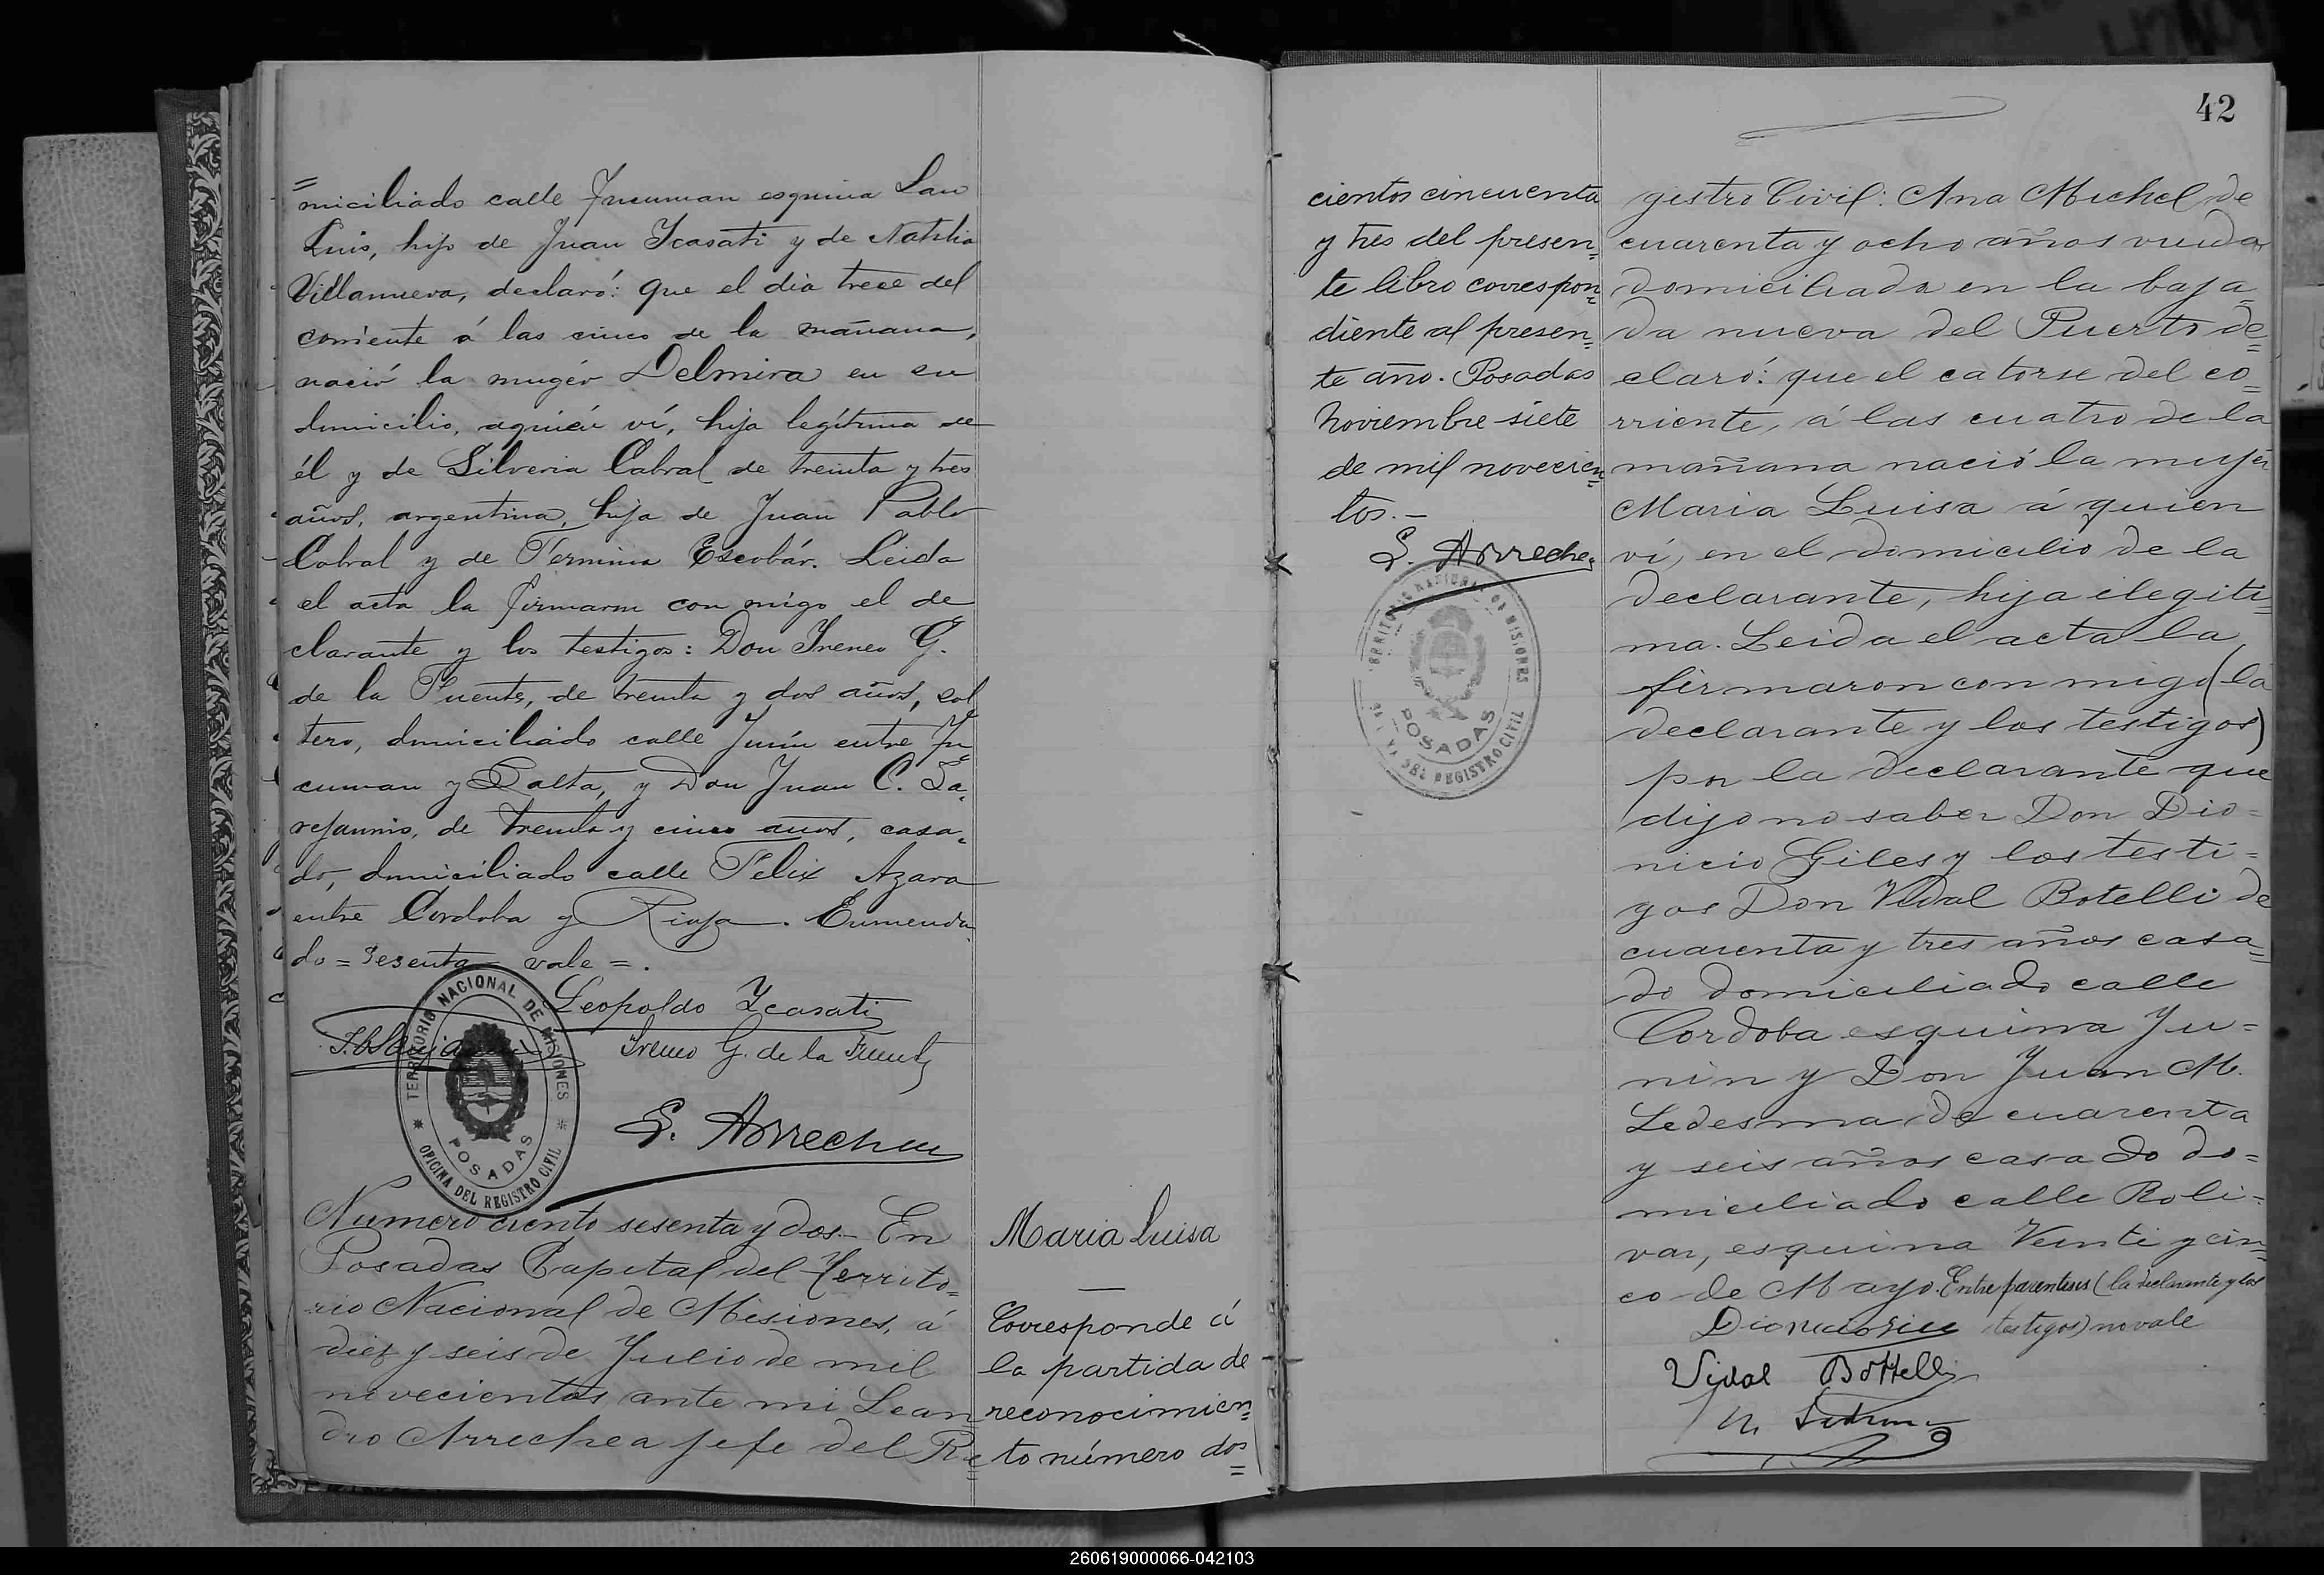 =miciliado calle Tucuman esquina San
Luis, hijo de Juan Ycasati y de Natalia
Villanueva, declaró: que el dia trece del
corriente á las cinco de la mañana,
nació la mugér Delmira en su
domicilio, aquién ví, hija legítima de
él y de Silveria Cabral de treinta y tres
años, argentina, hija de Juan Pablo
Cabral y de Fermina Escobár. Leida
el acta la firmaron con migo el de
clarante y los testigos: Don Ireneo G.
de la Fuente, de treinta y dos años, sol
tero, domiciliado calle Junin entre Tu
cuman y Salta, y Don Juan C.
de treinta y cinco años, casa=
do, domiciliado calle Felix Azara
entre Cordoba y Rioja. Enmenda
do = sesenta = vale =.
Leopoldo Ycasati
Ireneo G. de la Fuente
TERRITORIO NACIONAL DE MISIONES
POSADAS
OFICINA DEL REGISTRO CIVIL
L. Arrechea
Numero ciento sesenta y dos.- En
Posadas Capital del Territo=
rio Nacional de Misiones, á
diez y seis de Julio de mil
novecientos, ante mi Lean=
dro Arrechea jefe del Re=
Maria Luisa
Corresponde á
la partida de
reconocimien=
to número dos=
42
cientos cincuenta
y tres del presen=
te libro correspon=
diente al presen=
te año. Posadas
Noviembre siete
de mil novecien=
tos.-
L. Arrechea
TERRITORIO NACIONAL DE MISIONES
POSADAS
OFICINA DEL REGISTRO CIVIL
gistro Civil: Ana Michel de
cuarenta y ocho años viuda
domiciliada en la baja=
da nueva del Puerto de=
claró: que el catorse del co=
rriente, á las cuatro de la
mañana nació la mujer
Maria Luisa á quien
ví, en el domicilio de la
declarante, hija ilegiti=
ma. Leida el acta la
firmaron con migo (la
declarante y los testigos)
por la declarante que
dijo no saber Don Dio=
nicio Giles y los testi=
gos Don Vidal Botelli de
cuarenta y tres años casa=
do domiciliado calle
Cordoba esquina Ju=
nin y Don Juan M.
Ledesma de cuarenta
y seis años casado do=
miciliado calle Boli=
var, esquina Veinte y cin=
co de Mayo. Entre parentesis (la declarante y los
testigos) no vale
Vidal Bottelli
260619000066-042103